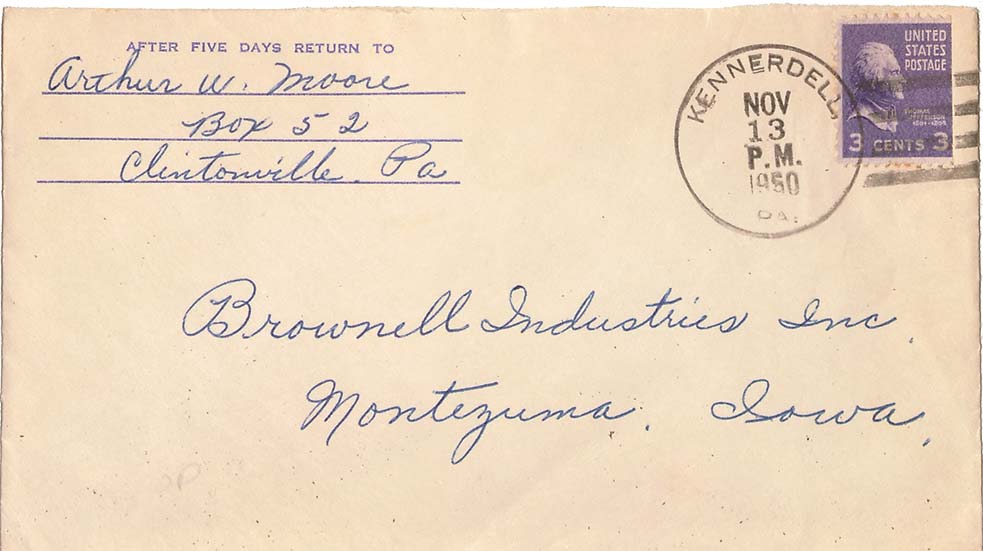 AFTER FIVE DAYS RETURN TO
Arthur W. Moore
Box 52
Clintonville, Pa
KENNERDELL
NOV
13
P.M.
1950
PA.
UNITED
STATES
POSTAGE
THOMAS
JEFFERSON
1801-1809
3 CENTS 3
Brownell Industries Inc.
Montezuma, Iowa,